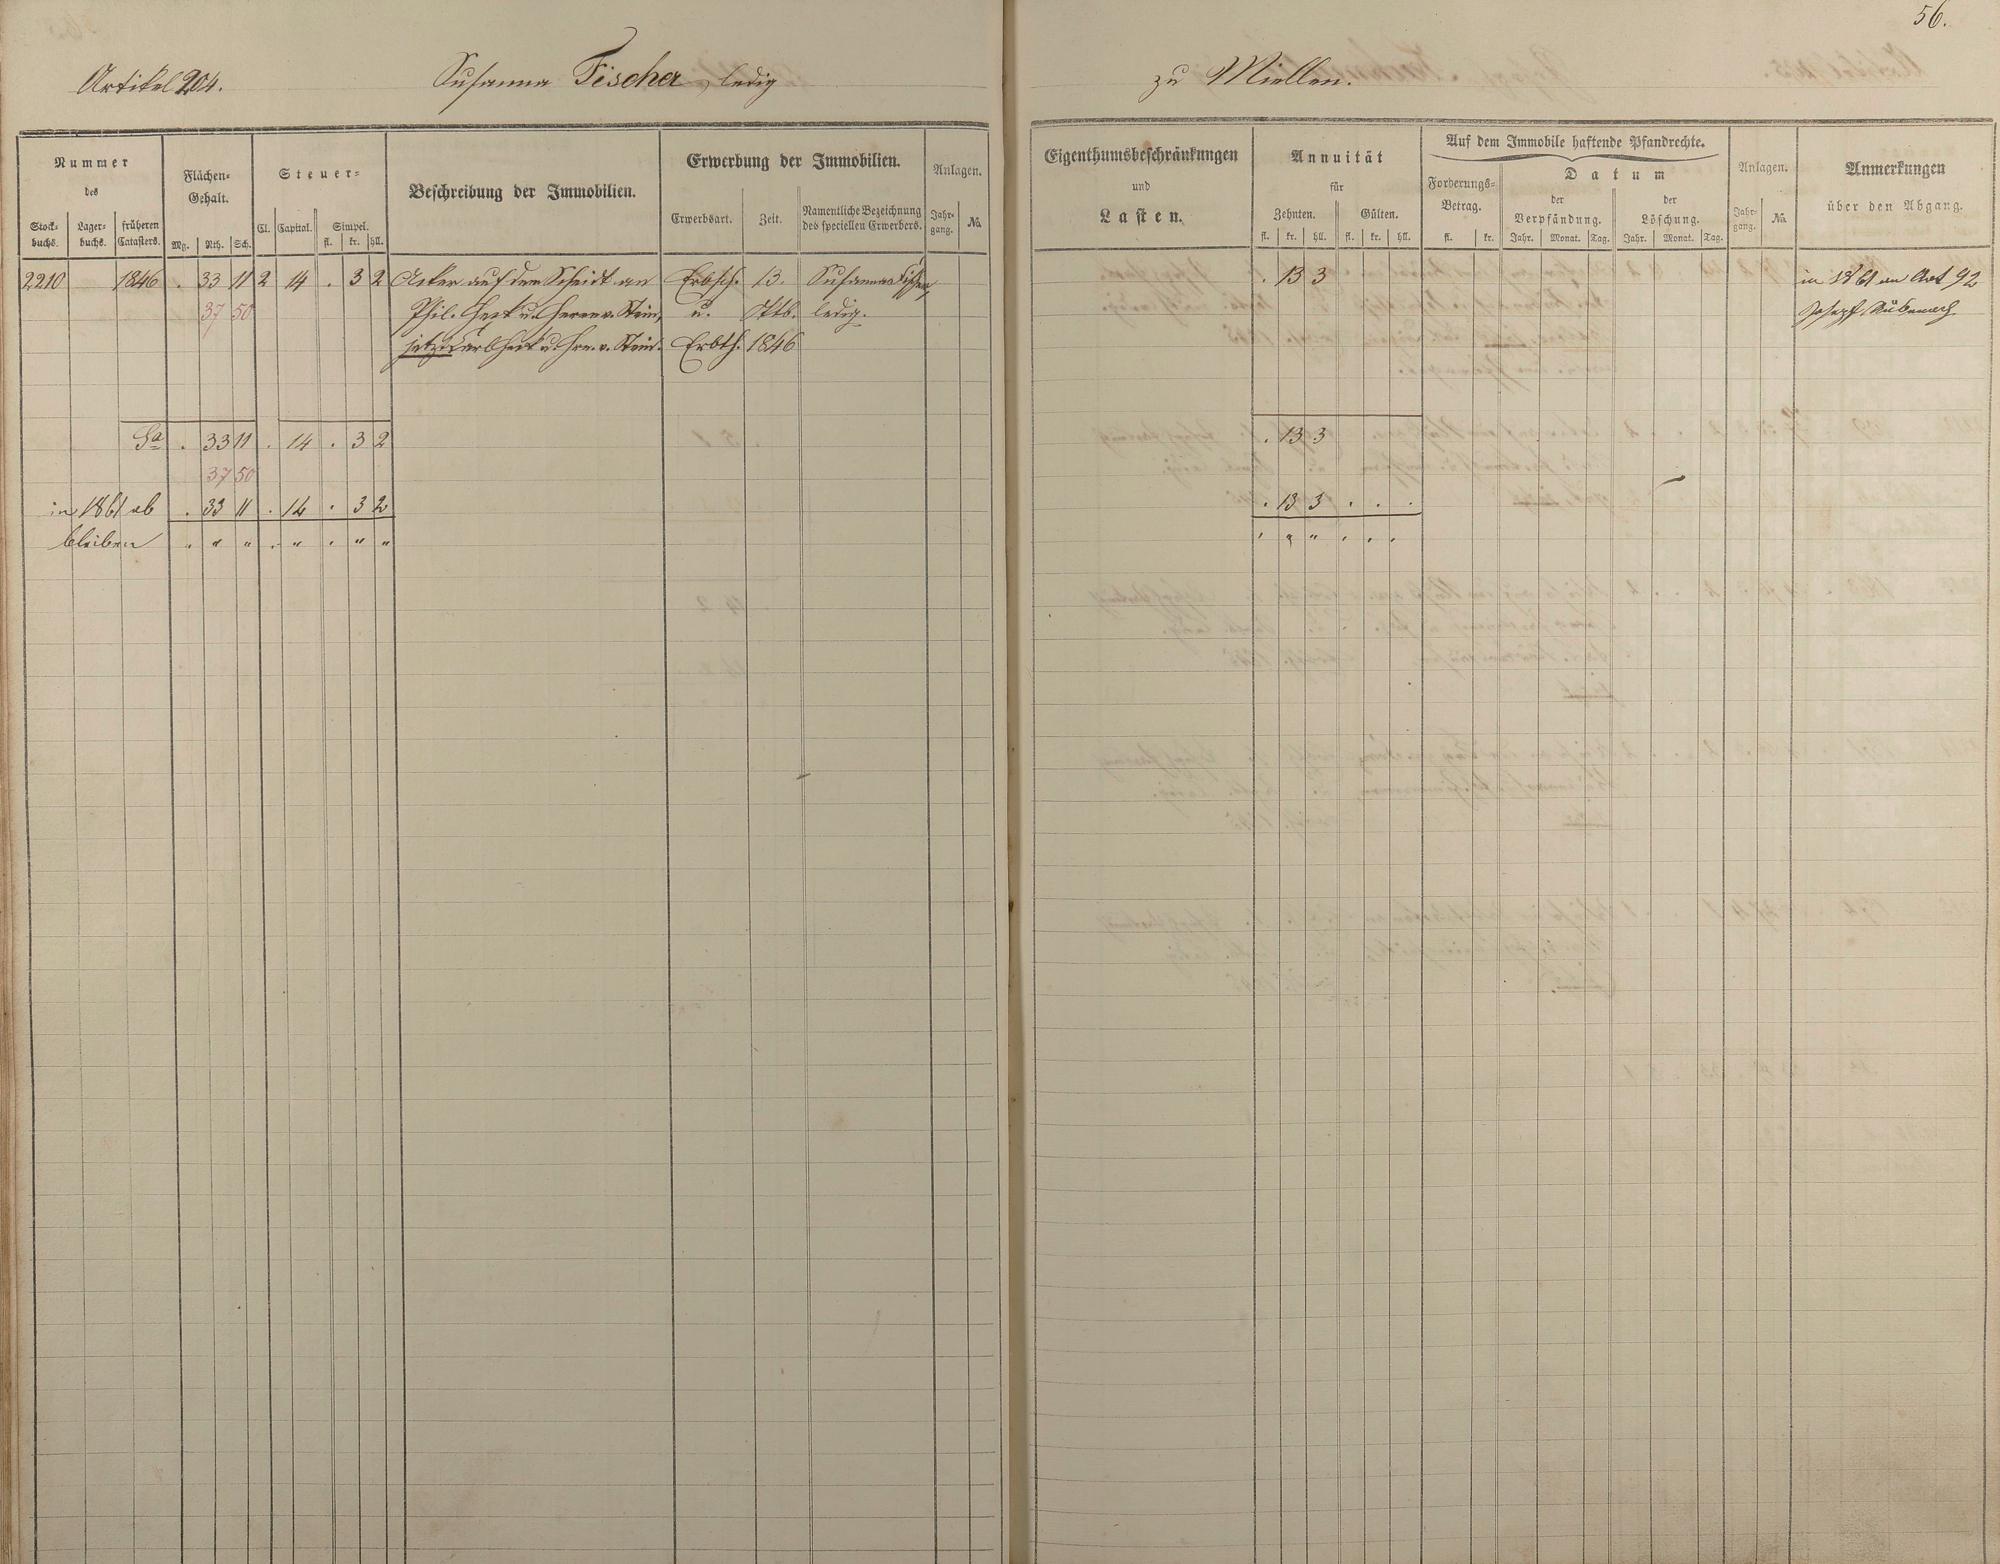 56.
Artikel 204. Susanna Fischer, ledig zu Miellen.
Nummer des
Stock- buchs. Lager- buchs. früheren Catasters.
Flächen- Gehalt.
Mg. Rth. Sch.
Steuer-
Cl. Capital. Simpel.
fl. kr. hll.
Beschreibung der Immobilien.
Erwerbung der Immobilien.
Erwerbsart. Zeit. Namentliche Bezeichnung des speciellen Erwerbers.
Anlagen.
Jahr- gang. No.
Eigenthumsbeschränkungen
und
Lasten.
Annuität
für
Zehnten. Gülten.
fl. kr. hll. fl. kr. hll.
Auf dem Immobile haftende Pfandrechte.
Forderungs- Betrag.
fl. kr.
Datum
der Verpfändung. der Löschung.
Jahr. Monat. Tag. Jahr. Monat. Tag.
Anlagen.
Jahr- gang. No.
Anmerkungen
über den Abgang.
2210 1846 . 33 11 2 14 . 3 2 Acker auf dem Scheidt an Erbsch. 13. Susanna Fischer, . 13 3 in 1861 an Art 92
37 50 Phil. u. Herrn v. Stein, u. Oktb. ledig. Joseph
jetzt u. Hrn. v. Stein. Erbth. 1846
Sa . 33 11 . 14 . 3 2 . 13 3
37 50
in 1861 ab . 33 11 . 14 . 3 2 . 13 3 . . .
bleiben . " " . " . " " . " " . . .